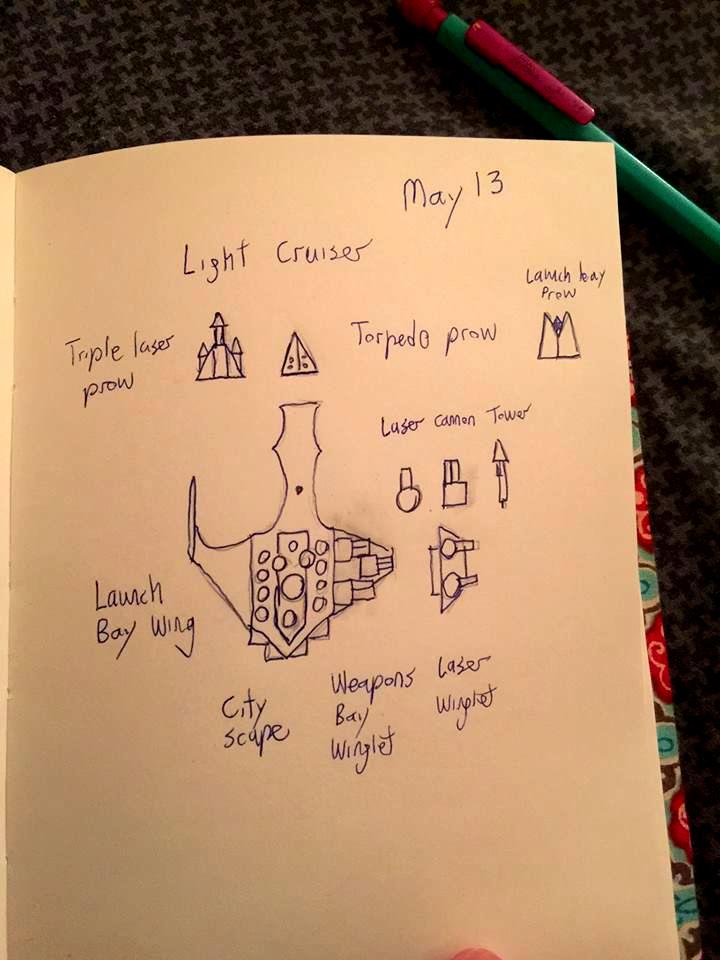 May 13
Light Cruiser
Launch bay
Prow
Triple laser
prow
Torpedo prow
Laser
Cannon
Tower
Launch
Bay Wing
City
scape
Weapons
Bay
Winglet
Laser
Winglet